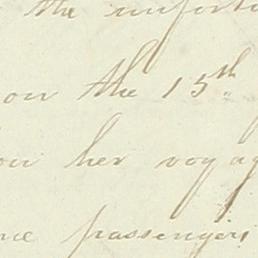 the unfortu
on the 15th
on her voyag
passengers